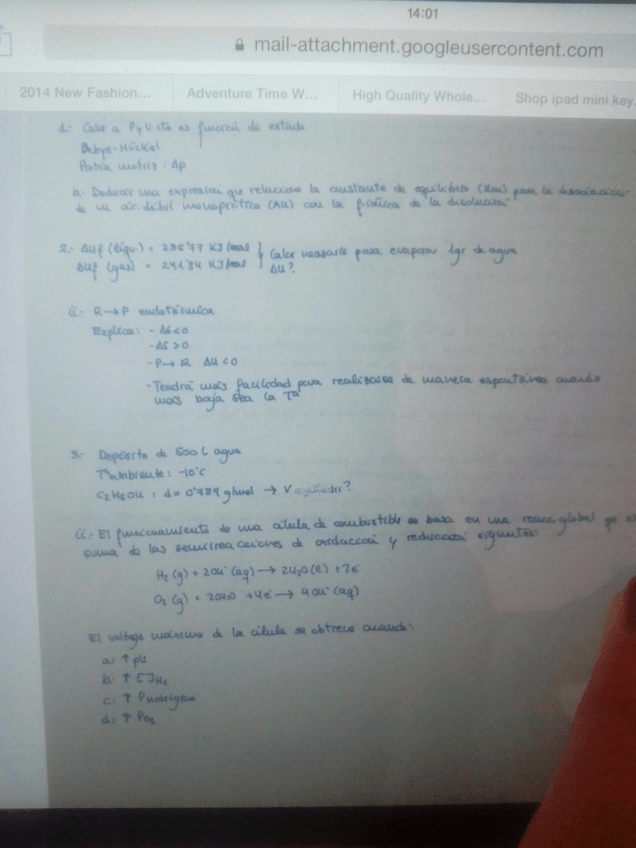 14:01
mail-attachment.googleusercontent.com
2014 New Fashion... Adventure Time W... High Quality Whole... Shop ipad mini key
d.- Calor a P y V cte es función de estado
Debye-Hückel
Patrón matriz: Δp
b.- Deducir una expresión que relacione la constante de equilibrio para la disociación
de un ác. débil monoprótico (AH) con la de la disolución
2.- ΔHf (líqu.) = 285'77 KJ/mol
ΔHf (gas) = 241'84 KJ/mol
Calor necesario para evaporar 1gr de agua
ΔU?
ii.- R → P endotérmica
Explica: - ΔG<0
- ΔS>0
- P → R ΔH<0
- Tendrá más facilidad para realizarse de manera espontánea cuando
más baja sea la Tª
3.- Depósito de 500 L agua
Tª ambiente: -10°C
C2H5OH: d= 0'789 g/mol → V ?
ii.- El funcionamiento de una célula de combustible se basa en una global
suma de las semireacciones de oxidación y reducción siguientes:
H2(g) + 2OH-(aq) → 2H2O(l) + 2e-
O2(g) + 2OH2O + 4e- → 4OH-(aq)
El voltaje máximo de la célula se obtiene cuando:
a.- ↑ pH
b.- ↑ [ ]H2
c.- ↑ Phidrógeno
d.- ↑ PO2